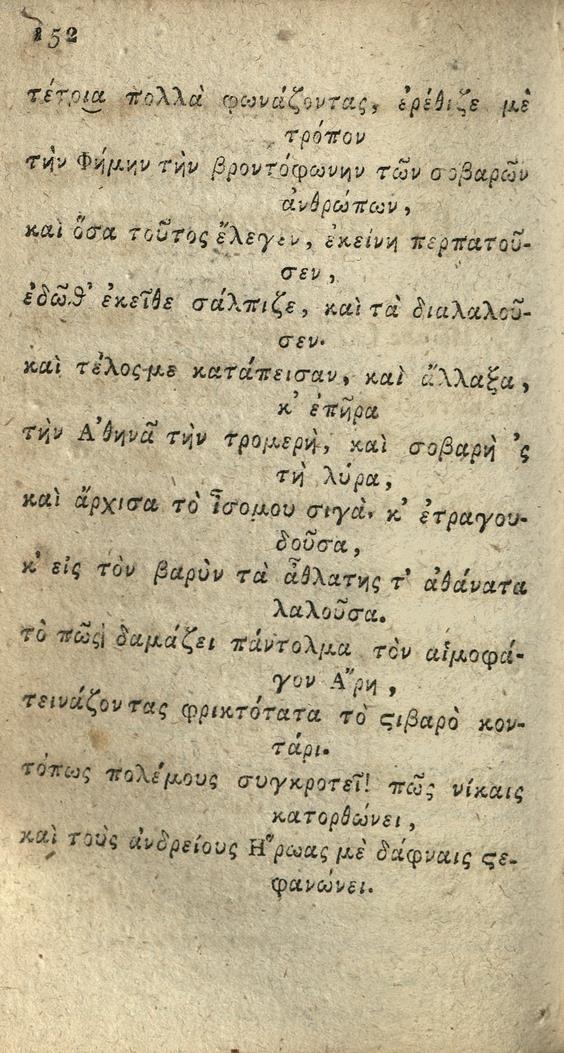 152
τέτοια πολλὰ φωνάζοντας, ἐρέθιζε μὲ
τρόπον
τὴν Φήμην τὴν βροντόφωνην τῶν σοβαρῶν
ἀνθρώπων,
καὶ ὅσα τοῦτος ἔλεγεν, ἐκείνη περπατοῦ-
σεν,
ἐδῶθ' ἐκεῖθε σάλπιζε, καὶ τὰ διαλαλοῦ-
σεν.
καὶ τέλος με κατάπεισαν, καὶ ἄλλαξα,
κ' ἐπῆρα
τὴν Ἀθηνᾶ τὴν τρομερὴ, καὶ σοβαρὴ 'ς
τὴ λύρα,
καὶ ἄρχισα τὸ ἶσομου σιγὰ. κ' ἐτραγου-
δοῦσα,
κ' εἰς τὸν βαρὺν τὰ ἆθλατης τ' ἀθάνατα
λαλοῦσα.
τὸ πῶς δαμάζει πάντολμα τὸν αἱμοφά-
γον Ἄρη,
τεινάζοντας φρικτότατα τὸ ϛιβαρὸ κον-
τάρι.
τόπως πολέμους συγκροτεῖ! πῶς νίκαις
κατορθώνει,
καὶ τοὺς ἀνδρείους Ἥρωας μὲ δάφναις ϛε-
φανώνει.